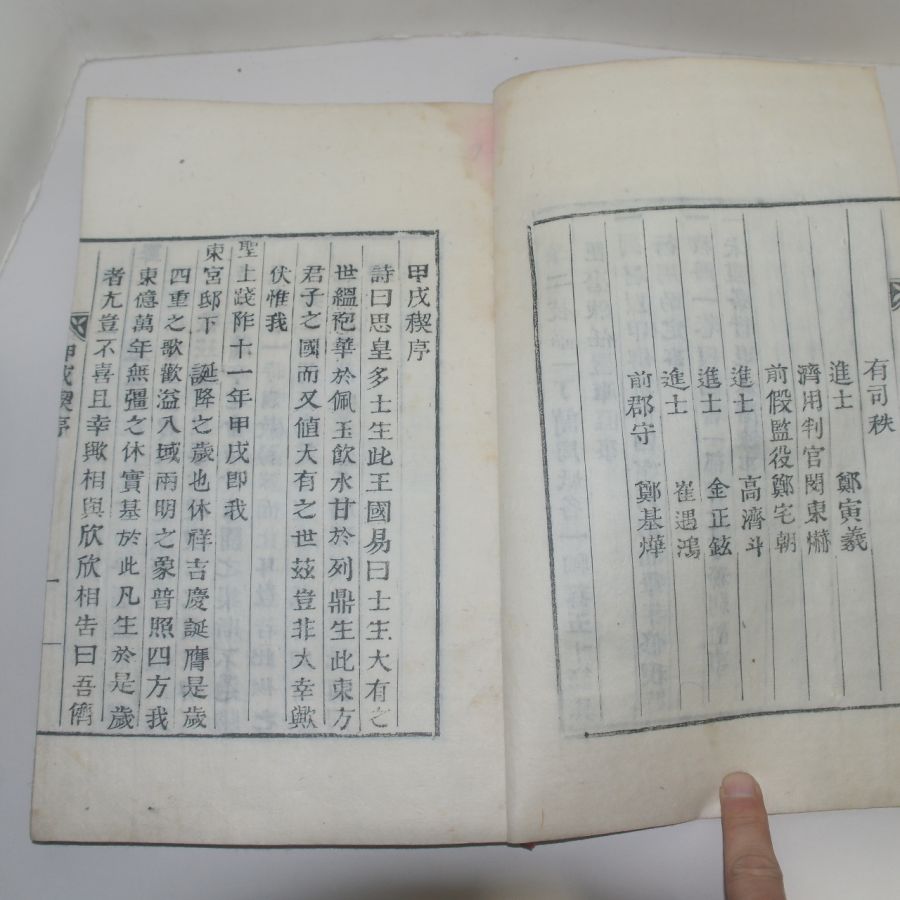 有司秩
進士 鄭寅羲
濟用判官閔東爀
前假監役鄭宅朝
進士 高濟斗
進士 金正鉉
進士 崔遇鴻
前郡守 鄭基燁
甲戌稧序
詩曰思皇多士生此王國易曰士生大有之
世縕袍華於佩玉飲水甘於列鼎生此東方
君子之國而又値大有之世玆豈非大幸歟
伏惟我
聖上踐阼十一年甲戌卽我
東宮邸下 誕降之歲也休祥吉慶誕膺是歲
四重之歌歡溢八域兩明之象普照四方我
東億萬年無彊之休實基於此凡生於是歲
者尤豈不喜且幸歟相與欣欣相告曰吾儕
甲戌稧序
一